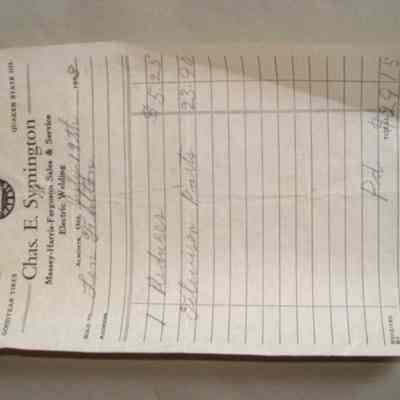 GOODYEAR TIRES QUAKER STATE OIL
Chas. E. Symington
Massey-Harris-Ferguson Sales & Service
Electric Welding
ALMONTE, ONT. 19th 195
SOLD TO Len
ADDRESS
1 Reducer $ 5.25
Parts 23.90
Pd TOTAL $29.15
RECEIVED BY